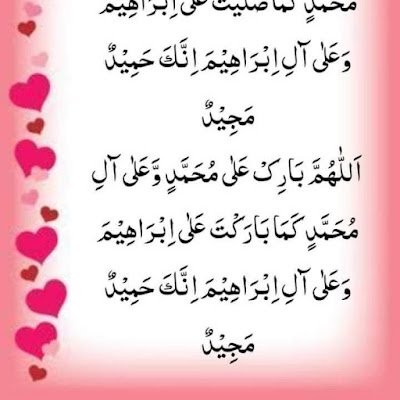 مُحَمَّدٍ كَمَا صَلَّيْتَ عَلٰى اِبْرَاهِيْمَ
وَعَلٰى آلِ اِبْرَاهِيْمَ اِنَّكَ حَمِيْدٌ
مَجِيْدٌ
اَللّٰهُمَّ بَارِكْ عَلٰى مُحَمَّدٍ وَّعَلٰى آلِ
مُحَمَّدٍ كَمَا بَارَكْتَ عَلٰى اِبْرَاهِيْمَ
وَعَلٰى آلِ اِبْرَاهِيْمَ اِنَّكَ حَمِيْدٌ
مَجِيْدٌ